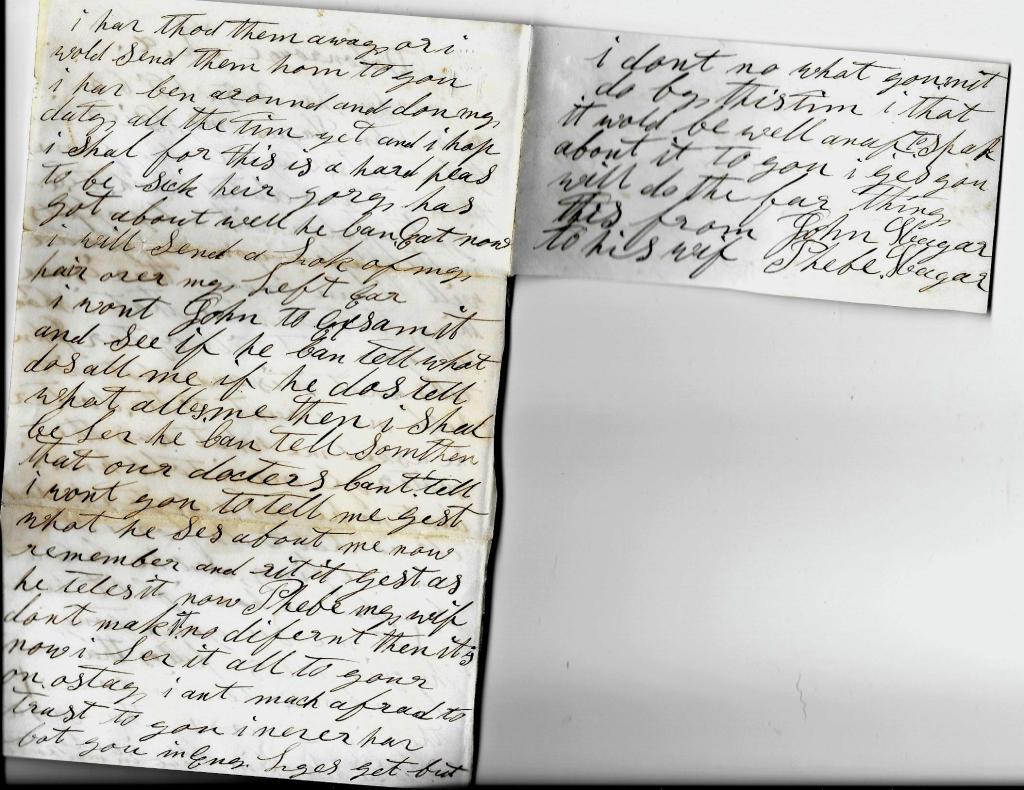 i har thod them away or i
wold send them hom to you
i har ben around and don my
duty all the tim yet and i hop
i shal for this is a hard plas
to be sick heir gorg has
got about well he can eat now
i will send a Lok of my
hair over my Left Ear
i wont John to Exsamit
and see if he can tell what
dos all me if he dos tell
what alles me then i shal
be Ler he can tell somthen
that our docters cant tell
i wont you to tell me gest
what he ses about me now
remember and rit it gest as
he teles it now Phebe my wif
dont mak it no difernt then it is
now i Ler it all to your
on ostay i ant mach afraid to
trust to you i never har
cot you in Eny Liges yet but
i dont no what you mit
do by this tim i that
it wold be well anuf to spak
about it to you i ges you
will do the far thing
this from John Seagar
to his wif Phebe Seagar